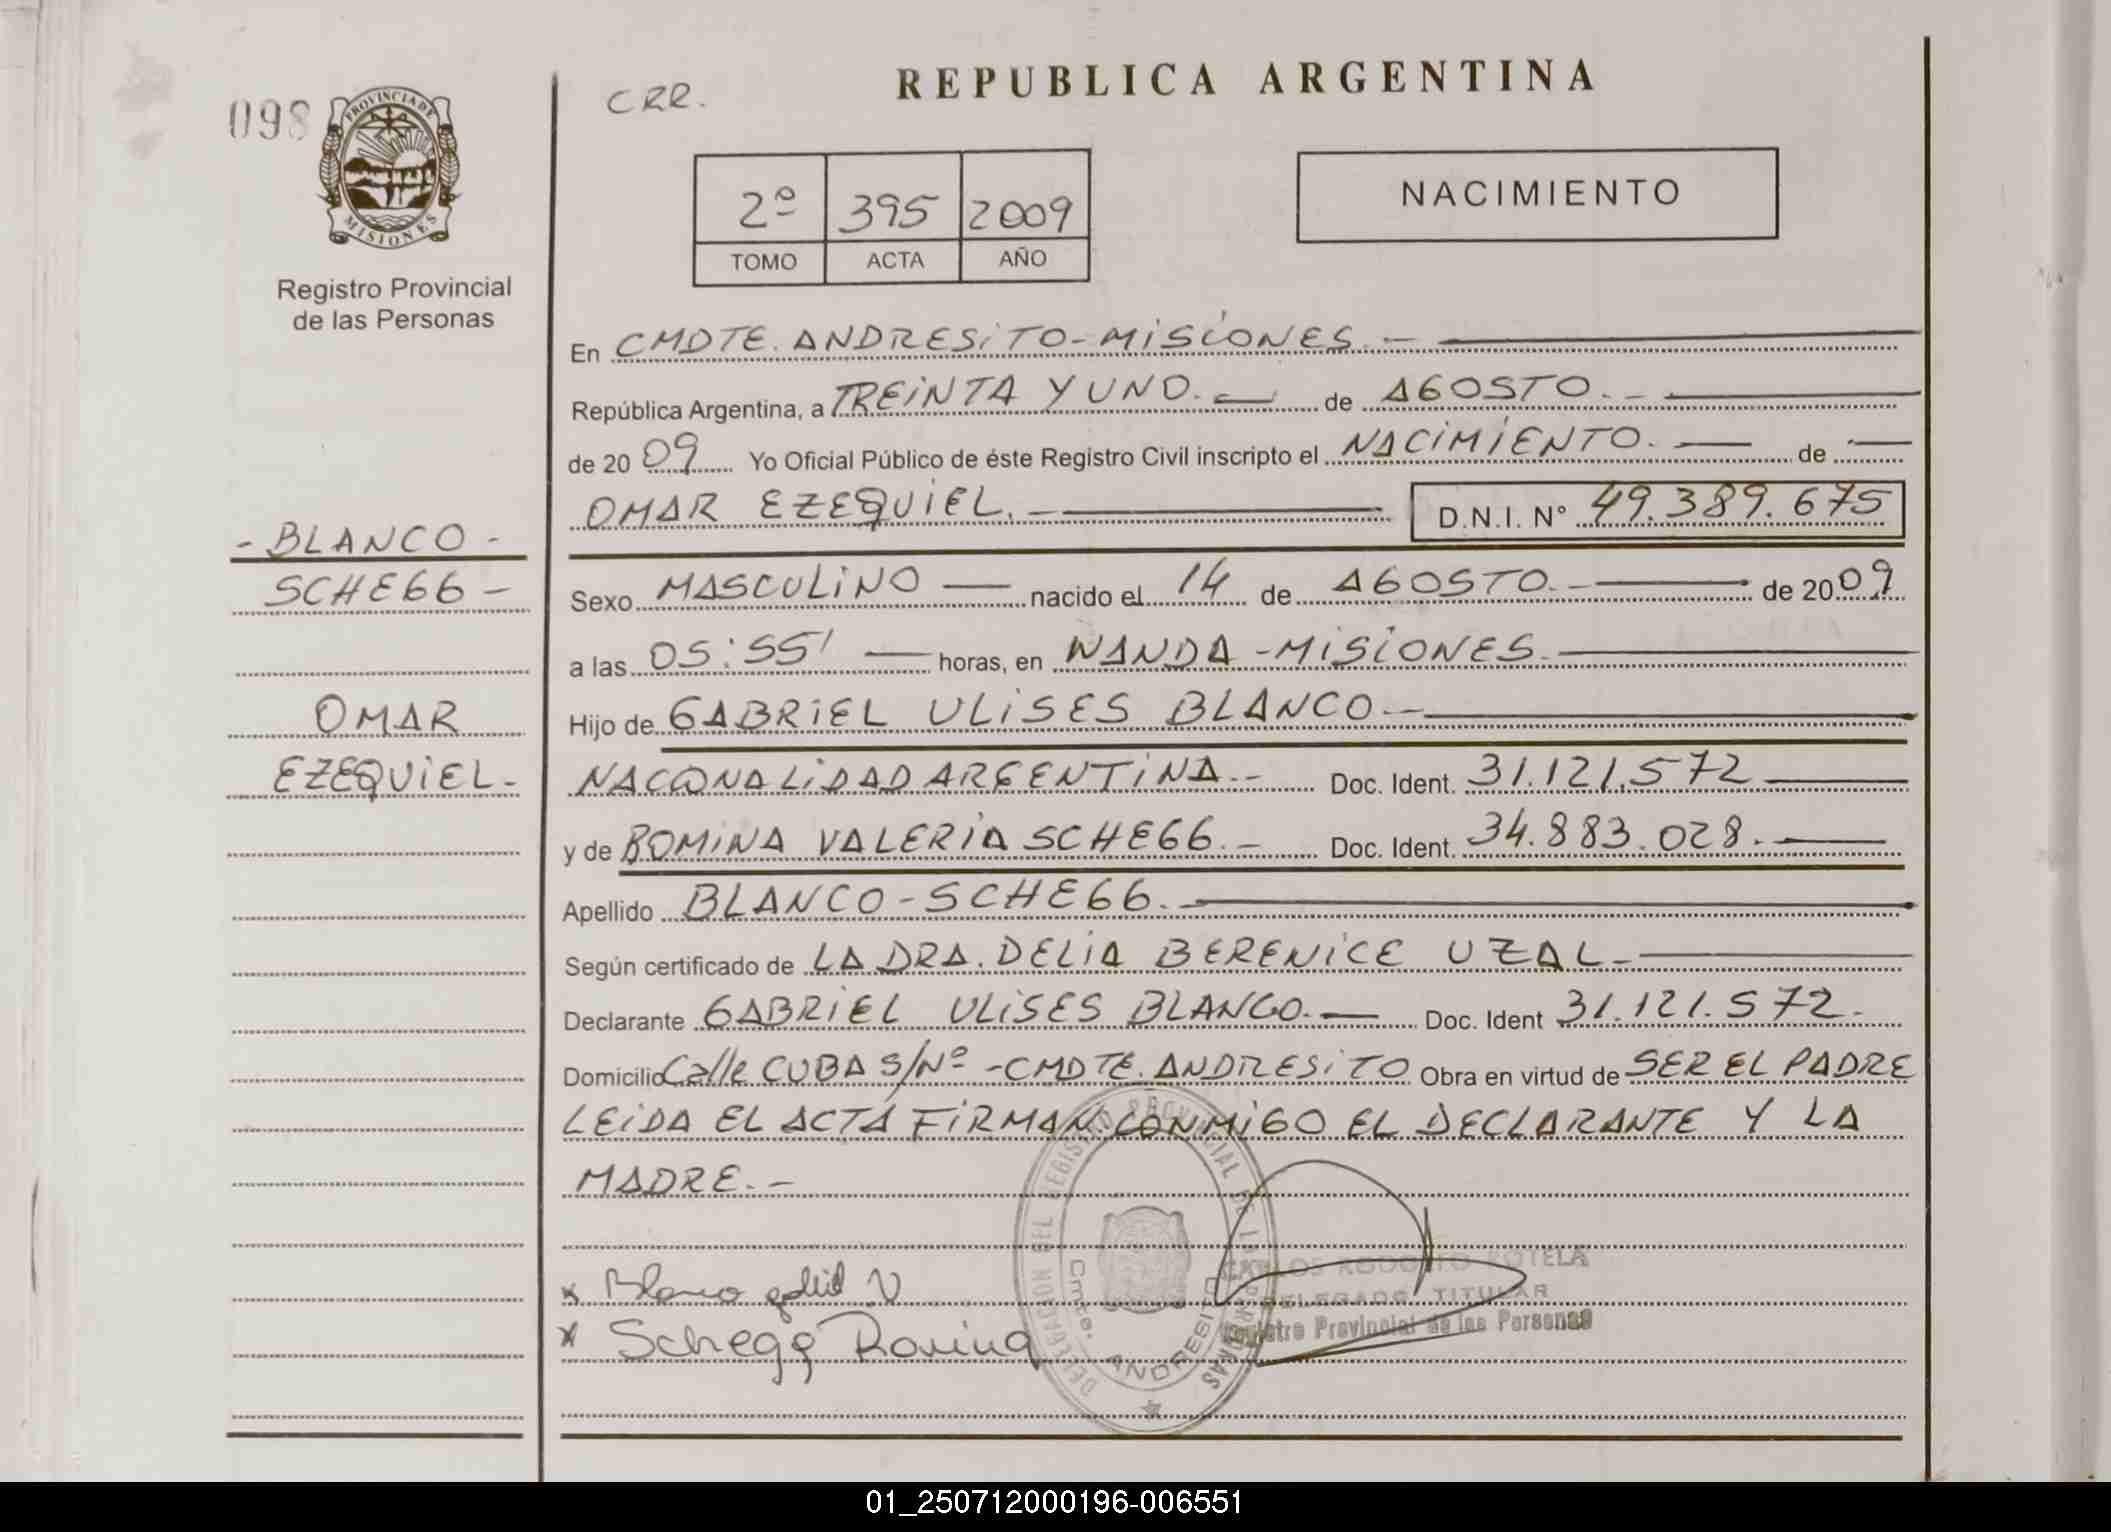 CRR.
REPUBLICA ARGENTINA
098
PROVINCIA DE
MISIONES
Registro Provincial
de las Personas
2º 395 2009
TOMO ACTA AÑO
NACIMIENTO
En CMDTE. ANDRESITO-MISIONES.-
República Argentina, a TREINTA Y UNO. de AGOSTO.-
de 20 09 Yo Oficial Público de éste Registro Civil inscripto el NACIMIENTO. de
OMAR EZEQUIEL.- D.N.I. Nº 49.389.675
- BLANCO -
SCHEGG -
OMAR
EZEQUIEL-
Sexo MASCULINO nacido el 14 de AGOSTO.- de 2009
a las 05:55' horas, en WANDA-MISIONES.
Hijo de GABRIEL ULISES BLANCO.-
NACONALIDAD ARGENTINA.- Doc. Ident. 31.121.572
y de ROMINA VALERIA SCHEGG.- Doc. Ident. 34.883.028.
Apellido BLANCO-SCHEGG.
Según certificado de LA DRA. DELIA BERENICE UZAL.
Declarante GABRIEL ULISES BLANCO. Doc. Ident 31.121.572.
Domicilio Calle CUBA S/Nº -CMDTE. ANDRESITO Obra en virtud de SER EL PADRE
LEIDA EL ACTA FIRMAN CONMIGO EL DECLARANTE Y LA
MADRE.-
x Blanco gabriel U
x Schegg Romina
DELEGACION DEL REGISTRO PROVINCIAL DE LAS PERSONAS
Cmte. ANDRESITO
CARLOS ROTELA
DELEGADO TITULAR
Registro Provincial de las Personas
01_250712000196-006551